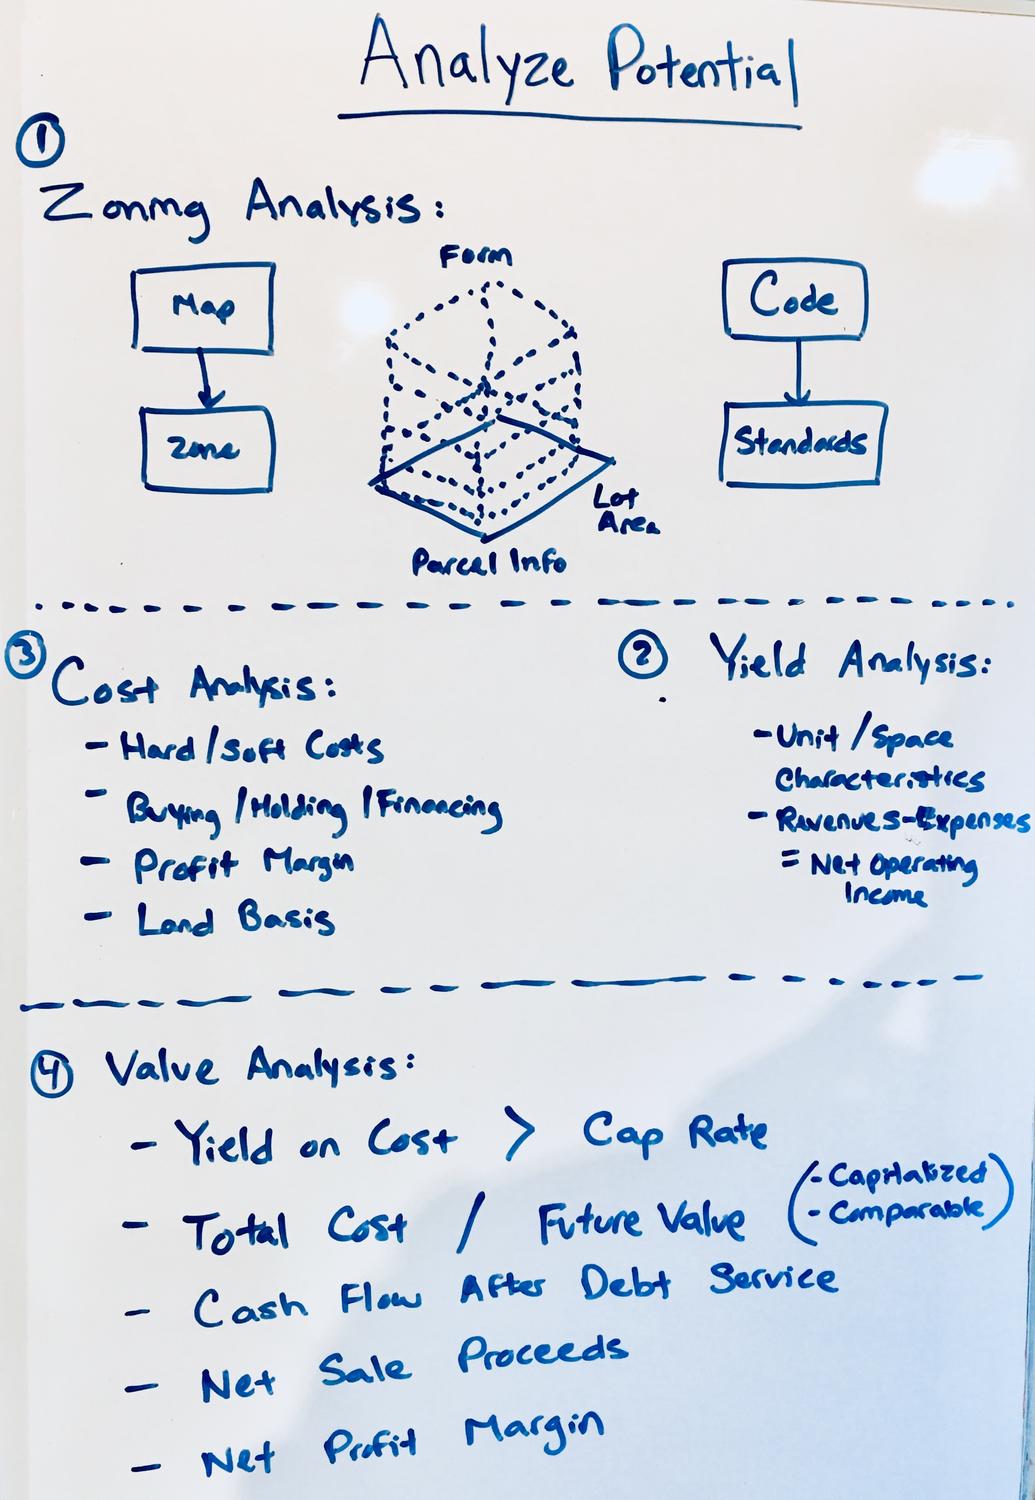 Analyze Potential
①
Zoning Analysis:
Map
Zone
Form
Lot
Area
Parcel Info
Code
Standards
③
Cost Analysis:
- Hard/Soft Costs
- Buying/Holding/Financing
- Profit Margin
- Land Basis
② Yield Analysis:
- Unit/Space
Characteristics
- Revenues-Expenses
= Net Operating
Income
④ Value Analysis:
- Yield on Cost > Cap Rate
- Total Cost / Future Value (- Capitalized
- Comparable)
- Cash Flow After Debt Service
- Net Sale Proceeds
- Net Profit Margin